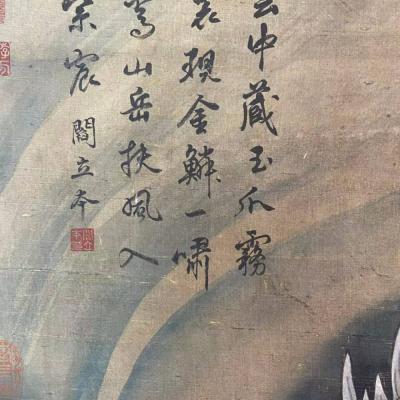 雲中藏玉爪霧
表現金鱗一嘯
嵩山岳扶風入
紫宸 閻立本